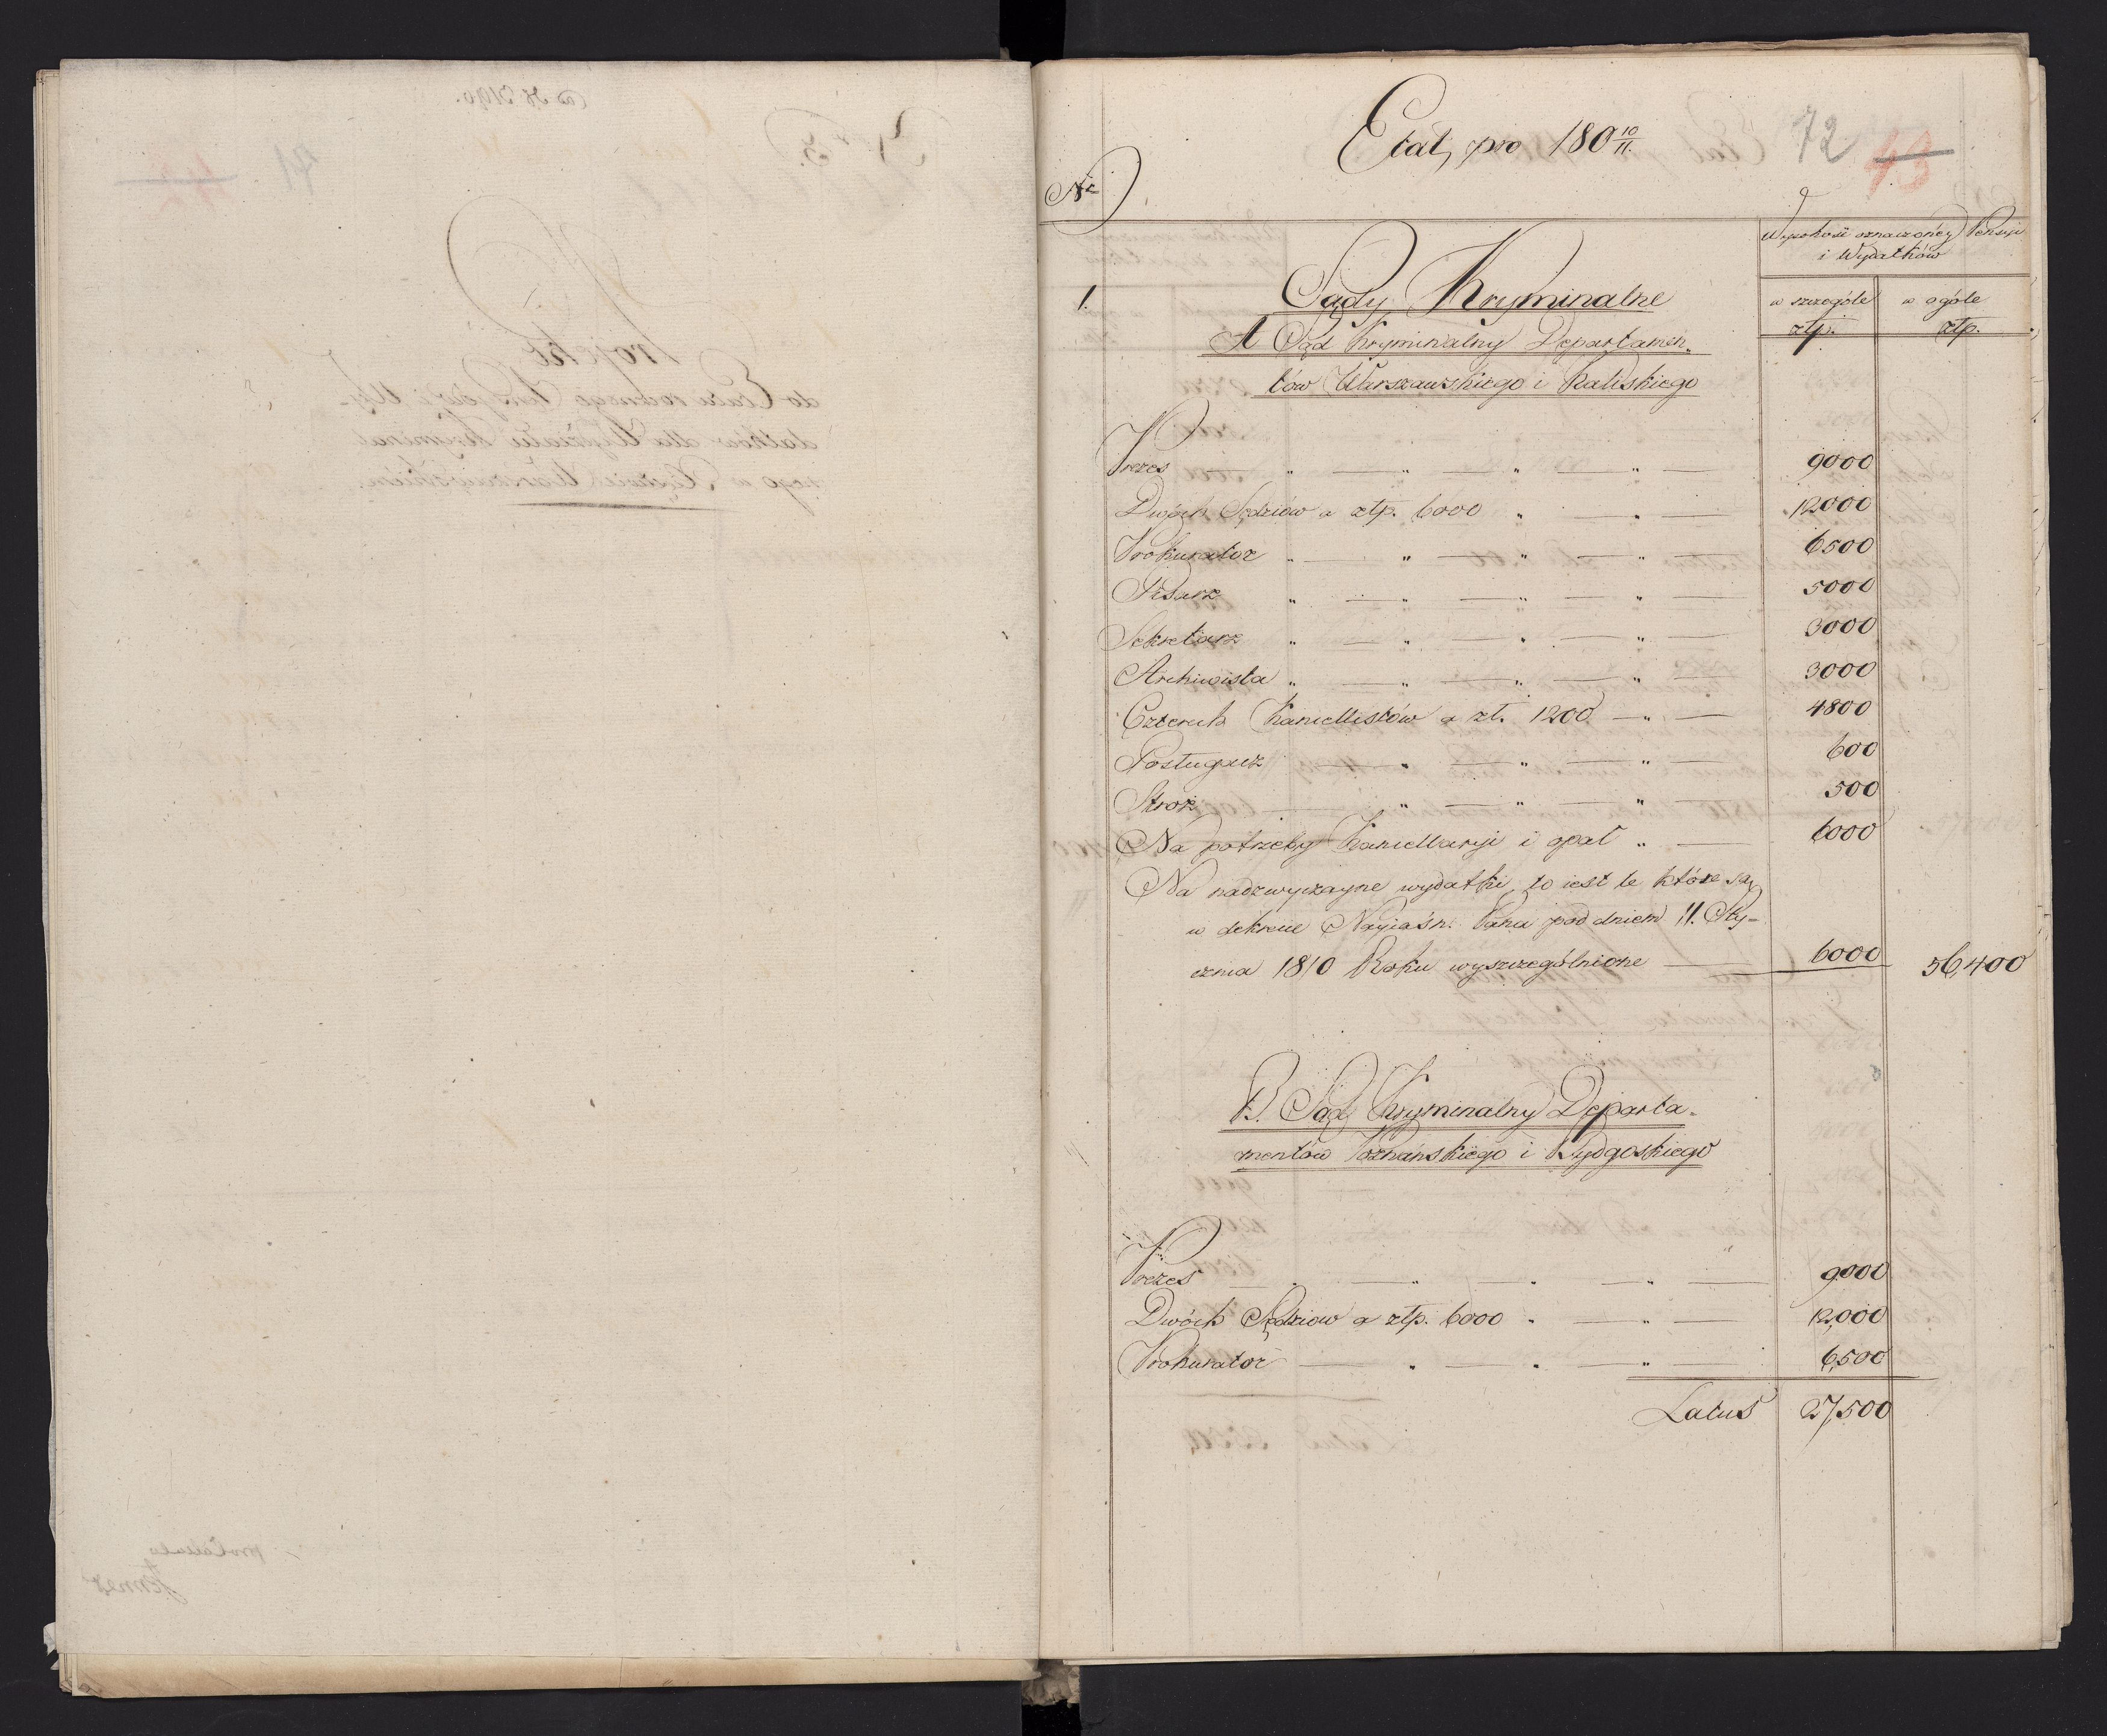 Etat, pro 180 10/11.
72
43
No
Wysokość oznaczonéy Pensyi
i Wydatków
w szczególe
złp.
w ogóle
złp.
1.
Sądy Kryminalne
A Sąd Kryminalny Departamen-
tów Warszawskiego i Kaliskiego
Prezes 9000
Dwóch Sędziów a złp. 6000 12000
Prokurator 6500
Pisarz 5000
Sekretarz 3000
Archiwista 3000
Czterech Kancellistów a zł. 1200 4800
Posługacz 600
Stróż 500
Na potrzeby Kancellaryi i opał 6000
Na nadzwyczayne wydatki, to iest te które są
w dekrecie Nayiaśn. Pana pod dniem 11. Sty-
cznia 1810 Roku wyszczególnione 6000 56,400
B. Sąd Kryminalny Departa-
mentów Poznańskiego i Bydgoskiego
Prezes 9000
Dwóch Sędziow a złp. 6000 12,000
Prokurator 6,500
Latus 27,500